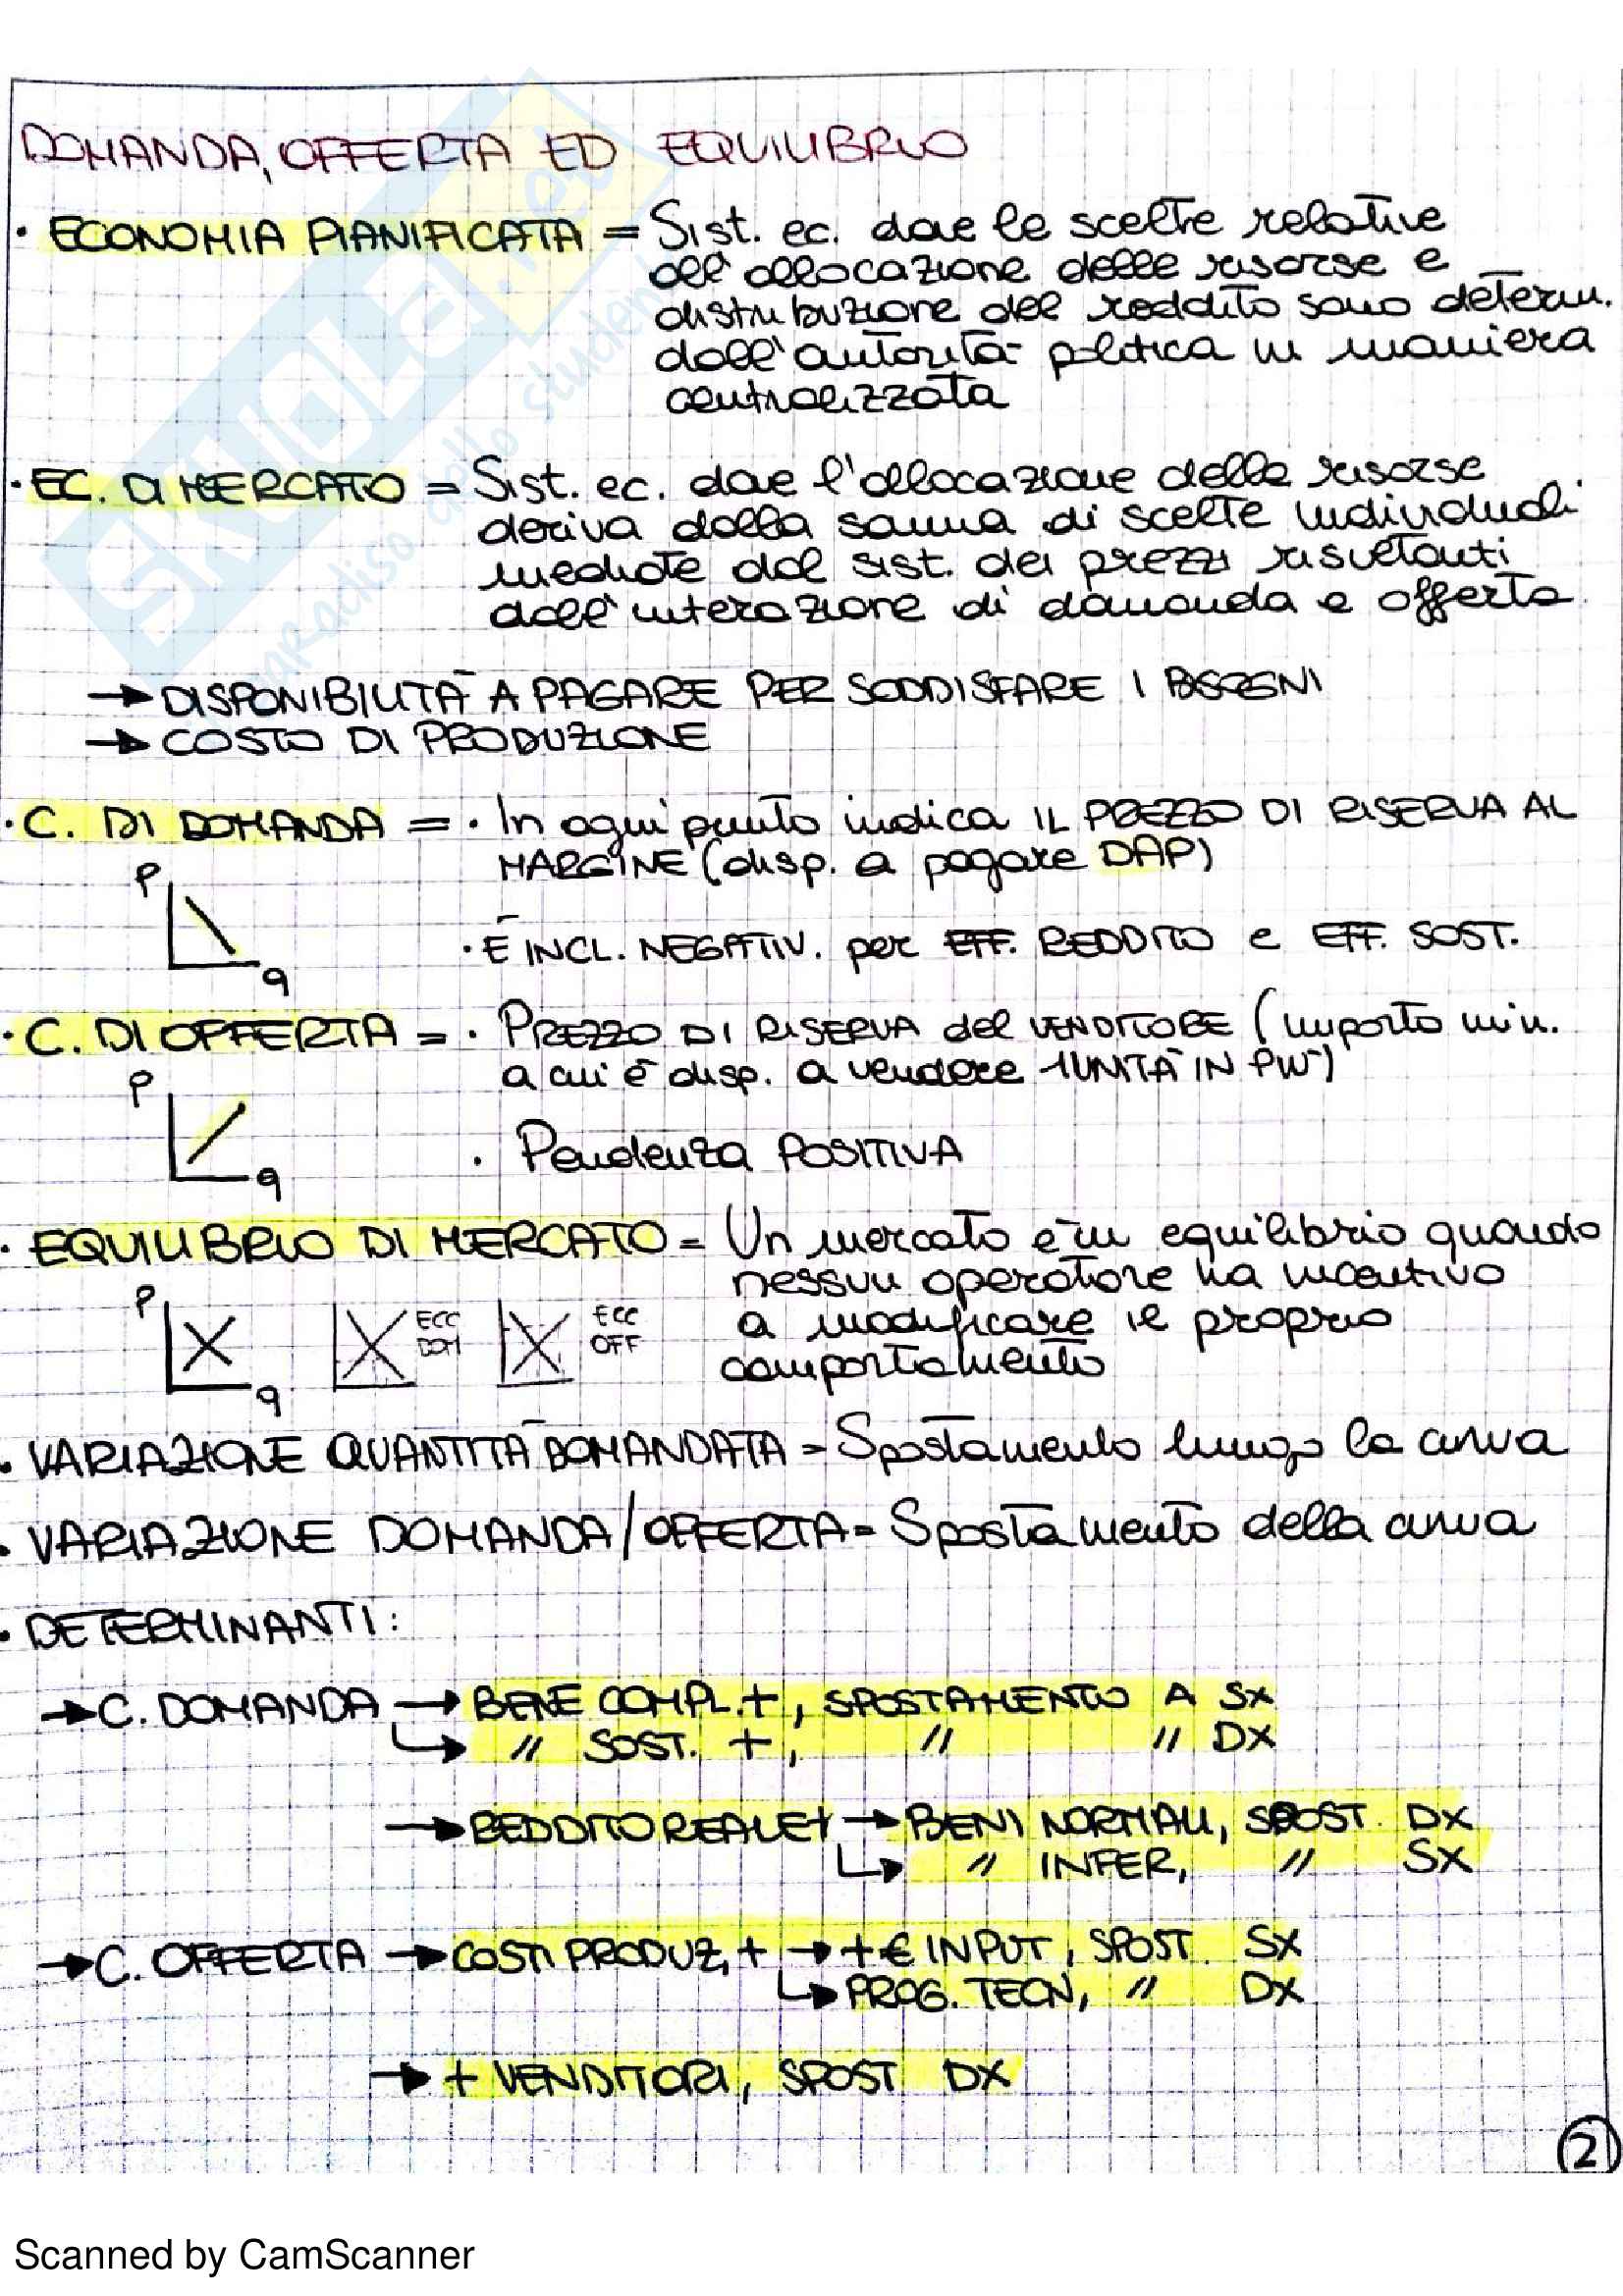 DOMANDA, OFFERTA ED EQUILIBRIO
· ECONOMIA PIANIFICATA = Sist. ec. dove le scelte relative
all'allocazione delle risorse e
distribuzione del reddito sono determ.
dall'autorità politica in maniera
centralizzata
· EC. DI MERCATO = Sist. ec. dove l'allocazione delle risorse
deriva dalla somma di scelte individuali
mediate dal sist. dei prezzi risultanti
dall'interazione di domanda e offerta
→ DISPONIBILITÀ A PAGARE PER SODDISFARE I BISOGNI
→ COSTO DI PRODUZIONE
· C. DI DOMANDA = · In ogni punto indica IL PREZZO DI RISERVA AL
MARGINE (disp. a pagare DAP)
P
q
· È INCL. NEGATIV. per EFF. REDDITO e EFF. SOST.
· C. DI OFFERTA = · PREZZO DI RISERVA del VENDITORE (importo min.
a cui è disp. a vendere 1 UNITÀ IN PIÙ)
P
q
· Pendenza POSITIVA
· EQUILIBRIO DI MERCATO = Un mercato è in equilibrio quando
nessun operatore ha incentivo
a modificare il proprio
comportamento
P
q
ECC
DOM
ECC
OFF
· VARIAZIONE QUANTITÀ DOMANDATA = Spostamento lungo la curva
· VARIAZIONE DOMANDA/OFFERTA = Spostamento della curva
· DETERMINANTI:
→ C. DOMANDA → BENE COMPL. +, SPOSTAMENTO A SX
↳ " SOST. +, " " DX
→ REDDITO REALE + → BENI NORMALI, SPOST. DX
↳ " INFER, " SX
→ C. OFFERTA → COSTI PRODUZ, + → + € INPUT, SPOST. SX
↳ PROG. TECN, " DX
→ + VENDITORI, SPOST DX
2
SKUOLA.net
paradiso dello studente
Scanned by CamScanner